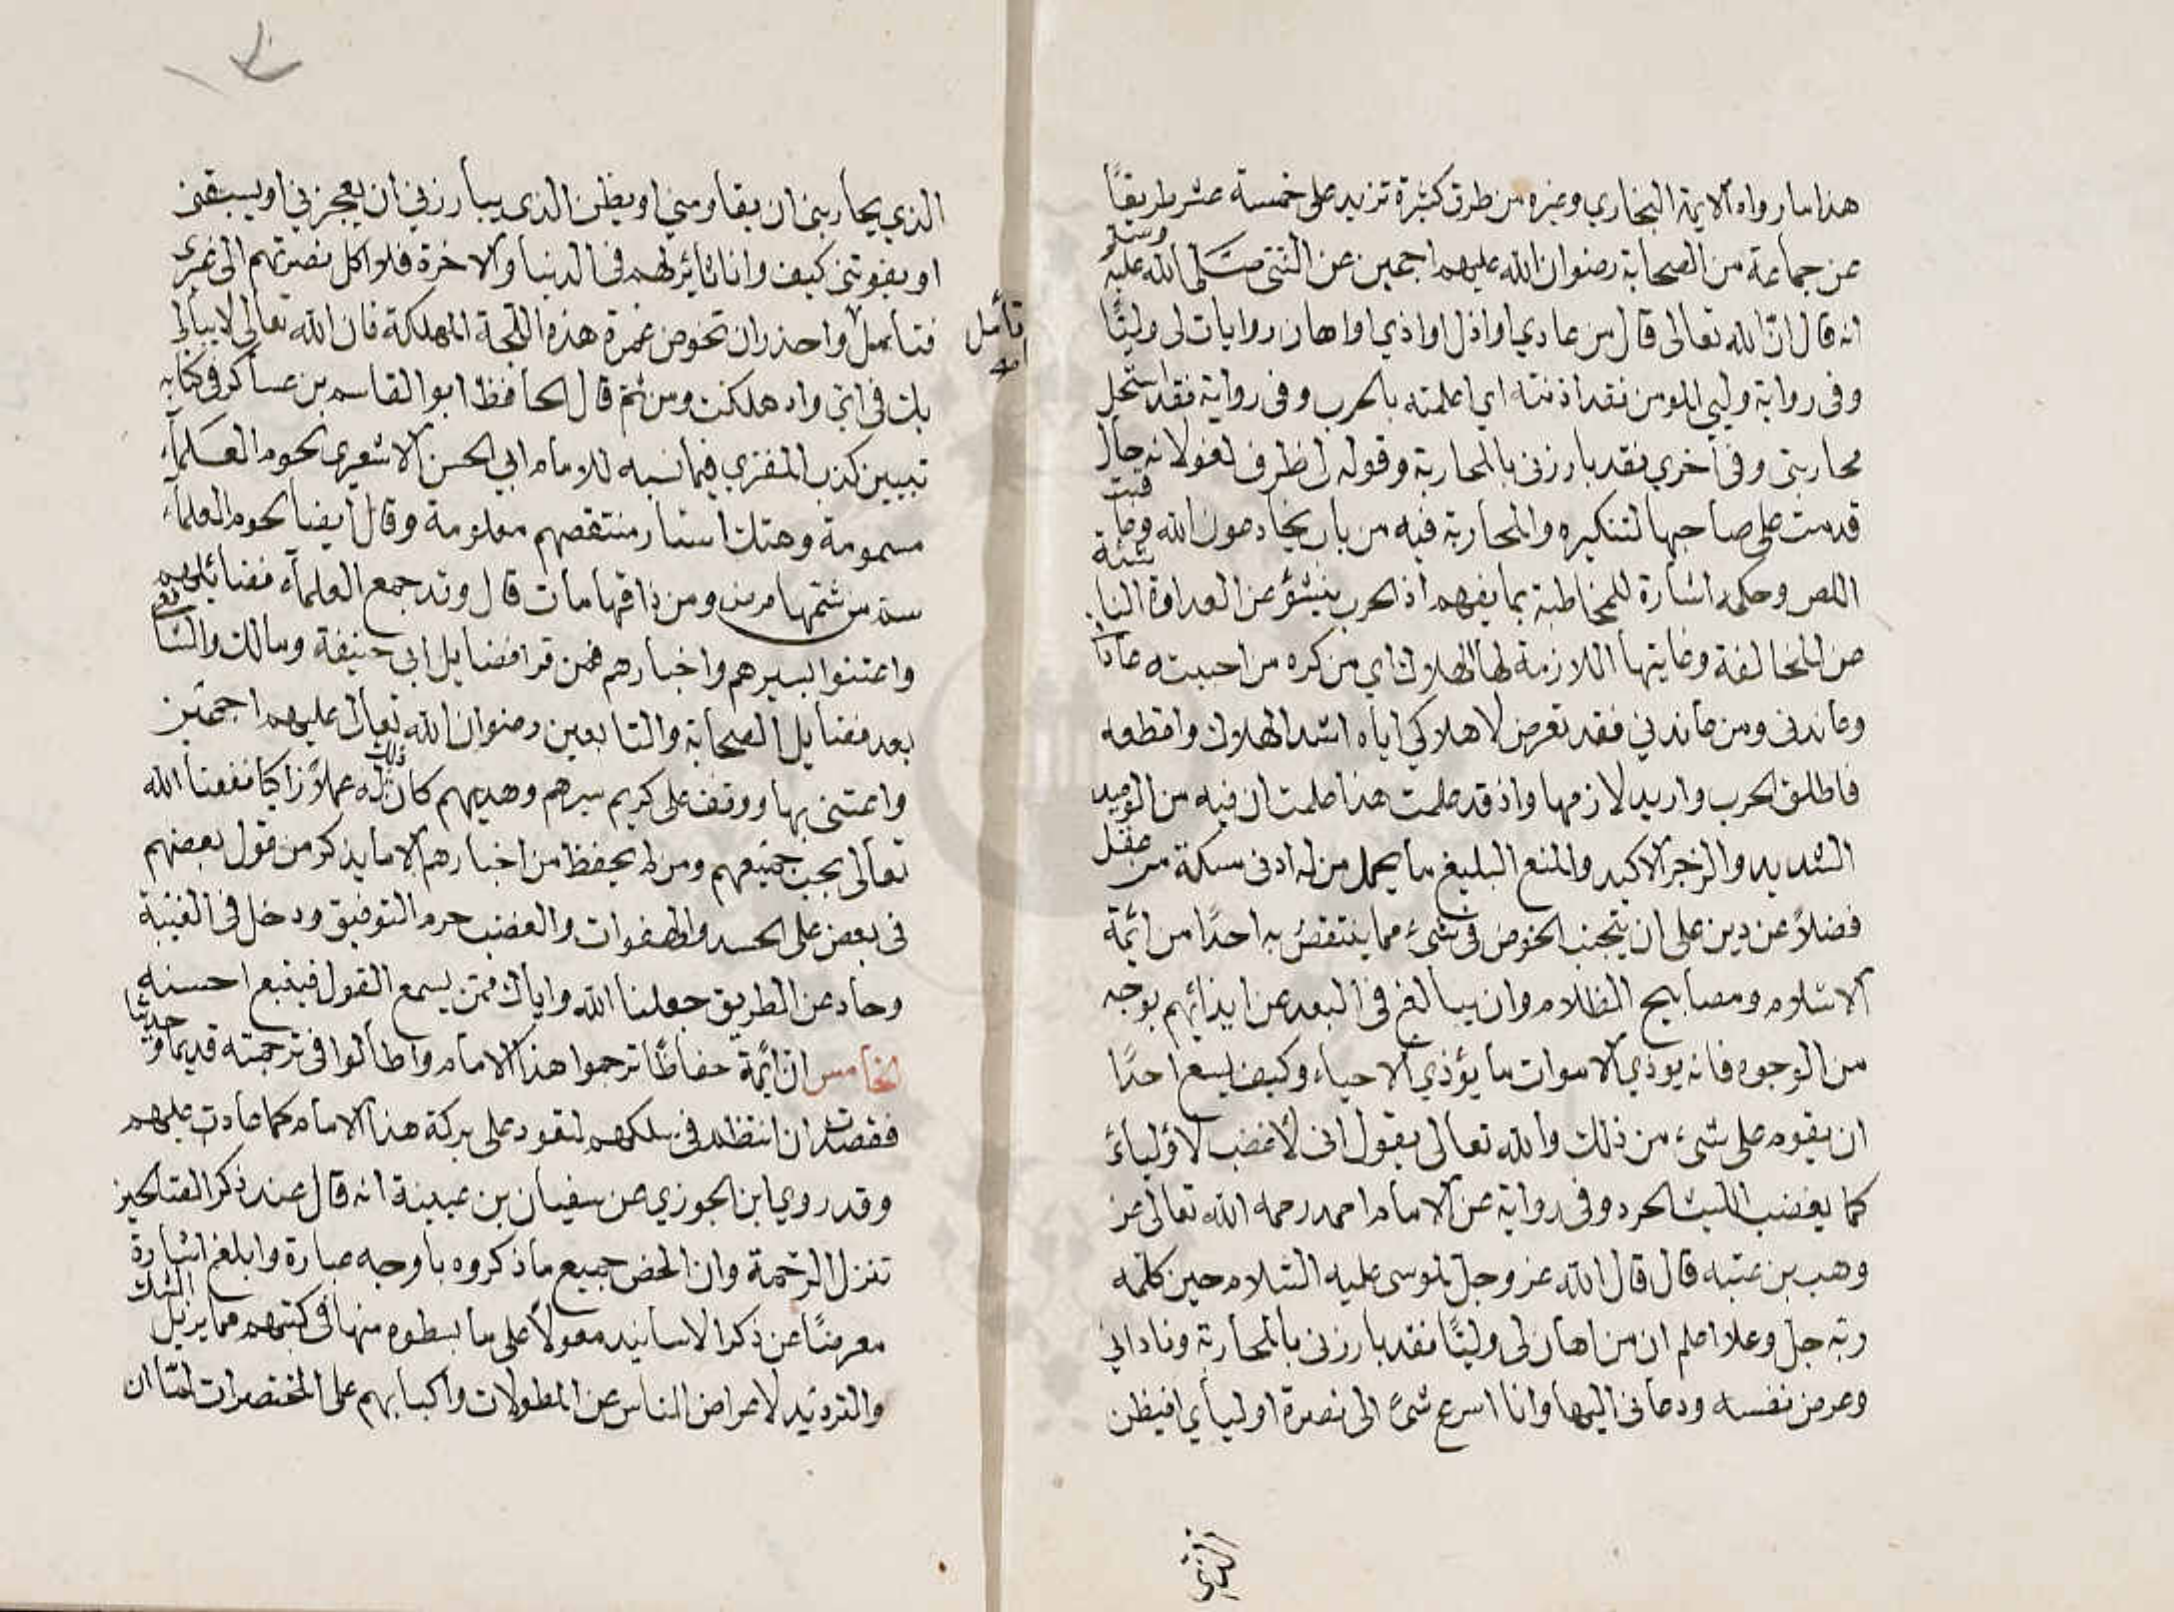 هذا ما رواه الايمة البخاري وغيره من طرق كثيرة تزيد على خمسة عشر طريقًا
عن جماعة من الصحابة رضوان الله عليهم اجمعين عن النبي صلى الله عليه وسلم
انه قال ان الله تعالى قال من عادي او اذل او اذي او اهان روايات لى وليًّا
وفى رواية وليي المومن فقد اذنته اي اعلمته بالحرب وفى رواية فقد استحل
محاربتى وفى أخري فقد بارزنى بالمحاربة وقوله لى ظرف لغو لا نه حال
قدمت على صاحبها لتنكيره والمحاربة فيه من باب يخادعون الله وعاقبت
اللص وحكمة اشارة للمخاطبة بما يفهم اذ الحرب ينشؤ عن العداوة الناشئة
عن المخالفة وغايتها اللازمة لها الهلاك اي من كره من احببته عاداني
وعاندنى ومن عاندني فقد تعرض لاهلاكي اياه اشد الهلاك وافظعه
فاطلق الحرب واريد لازمها واذ قد علمت هذا علمت ان فيه من الوعيد
الشديد والزجر الاكيد والمنع البليغ ما يحمل من له ادنى مسكة من عقل
فضلاً عن دين على ان يتجنب الخوض فى شىء مما ينتقص به احدًا من ائمة
الاسلام ومصابيح الظلام وان يبالغ فى البعد عن ايذائهم بوجه
من الوجوه فانه يوذي الاموات ما يؤذي الاحياء وكيف يسع احدًا
ان يقوم على شىء من ذلك والله تعالى يقول انى لأغضب لأوليائى
كما يغضب الليث الحرد وفى رواية عن الامام احمد رحمه الله تعالى عن
وهب بن عتبه قال قال الله عز وجل لموسى عليه السلام حين كلمه
ربه جل وعلا اعلم ان من اهان لى وليًّا فقد بارزنى بالمحاربة وناداني
وعرض نفسه ودعانى اليها وانا اسرع شئ الى نصرة اوليأي افيظن
الذي
الذي يحاربنى ان يقاومني او يظن الذى يبارزني ان يعجزني او يسبقنى
او يفوتنى كيف وانا ثائر لهم فى الدنيا والاخرة فلا اكل نصرتهم الى غيرى
فتأمل واحذر ان تخوض غمرة هذه اللجة المهلكة فان الله تعالى لا يبالى
تأمل
بك فى اي واد هلكت ومن ثم قال الحافظ ابو القاسم بن عساكر فى كتابه
تبيين كذب المفتري فيما نسبه للامام ابي الحسن الاشعرى لحوم العلماء
مسمومة وهتك استار منتقصهم معلومة وقال أيضا لحوم العلماء
سم من شمها مرض ومن ذاقها مات قال وقد جمع العلماء فضائلهم
واعتنوا بسيرهم واخبارهم فمن قرا فضايل ابى حنيفة ومالك والشافعي
بعد فضايل الصحابة والتابعين رضوان الله تعالى عليهم اجمعين
واعتنى بها ووقف على كريم سيرهم وهديهم كان ذلك له عملاً زاكيا نفعنا الله
تعالى بحب جميعهم ومن لم يحفظ من اخبارهم الا ما يذكر من قول بعضهم
فى بعض على الحسد والهفوات والغضب حرم التوفيق ودخل فى الغيبة
وحاد عن الطريق جعلنا الله واياك ممن يسمع القول فيتبع احسنه
الخامس ان ائمة حفاظًا ترجموا هذا الامام واطالوا فى ترجمته قديما وحديثا
فقصدت ان انتظم فى سلكهم لتعود على بركة هذا الامام كما عادت عليهم
وقد روي ابن الجوزي عن سفيان بن عيينة انه قال عند ذكر الصالحين
تنزل الرحمة وان الخص جميع ما ذكروه باوجه عبارة وابلغ اشارة
معرضًا عن ذكر الاسانيد معولاً على ما بسطوه منها فى كتبهم مما يزيل الشك
والترديد لاعراض الناس عن المطولات واكبابهم على المختصرات لما ان